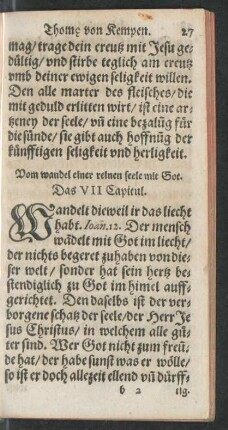 Thomę von Kempen. 27
mag/ trage dein creutz mit Jesu ge-
dültig/ vnd stirbe teglich am creutz
vmb deiner ewigen seligkeit willen.
Den alle marter des fleisches/ die
mit geduld erlitten wirt/ ist eine ar-
tzeney der seele/ vñ eine bezalūg für
die sünde/ sie gibt auch hoffnūg der
künfftigen seligkeit vnd herligkeit.
Vom wandel einer reinen seele mit Got.
Das VII Capitul.
Wandelt dieweil ir das liecht
habt. Ioan.12. Der mensch
wādelt mit Got im liecht/
der nichts begeret zuhaben von die-
ser welt/ sonder hat sein hertz be-
stendiglich zu Got im himel auff-
gerichtet. Den daselbs ist der ver-
borgene schatz der seele/ der Herr Je
sus Christus/ in welchem alle gü-
ter sind. Wer Got nicht zum freū-
de hat/ der habe sunst was er wölle/
so ist er doch allezeit ellend vñ dürff-
b 2 tig.